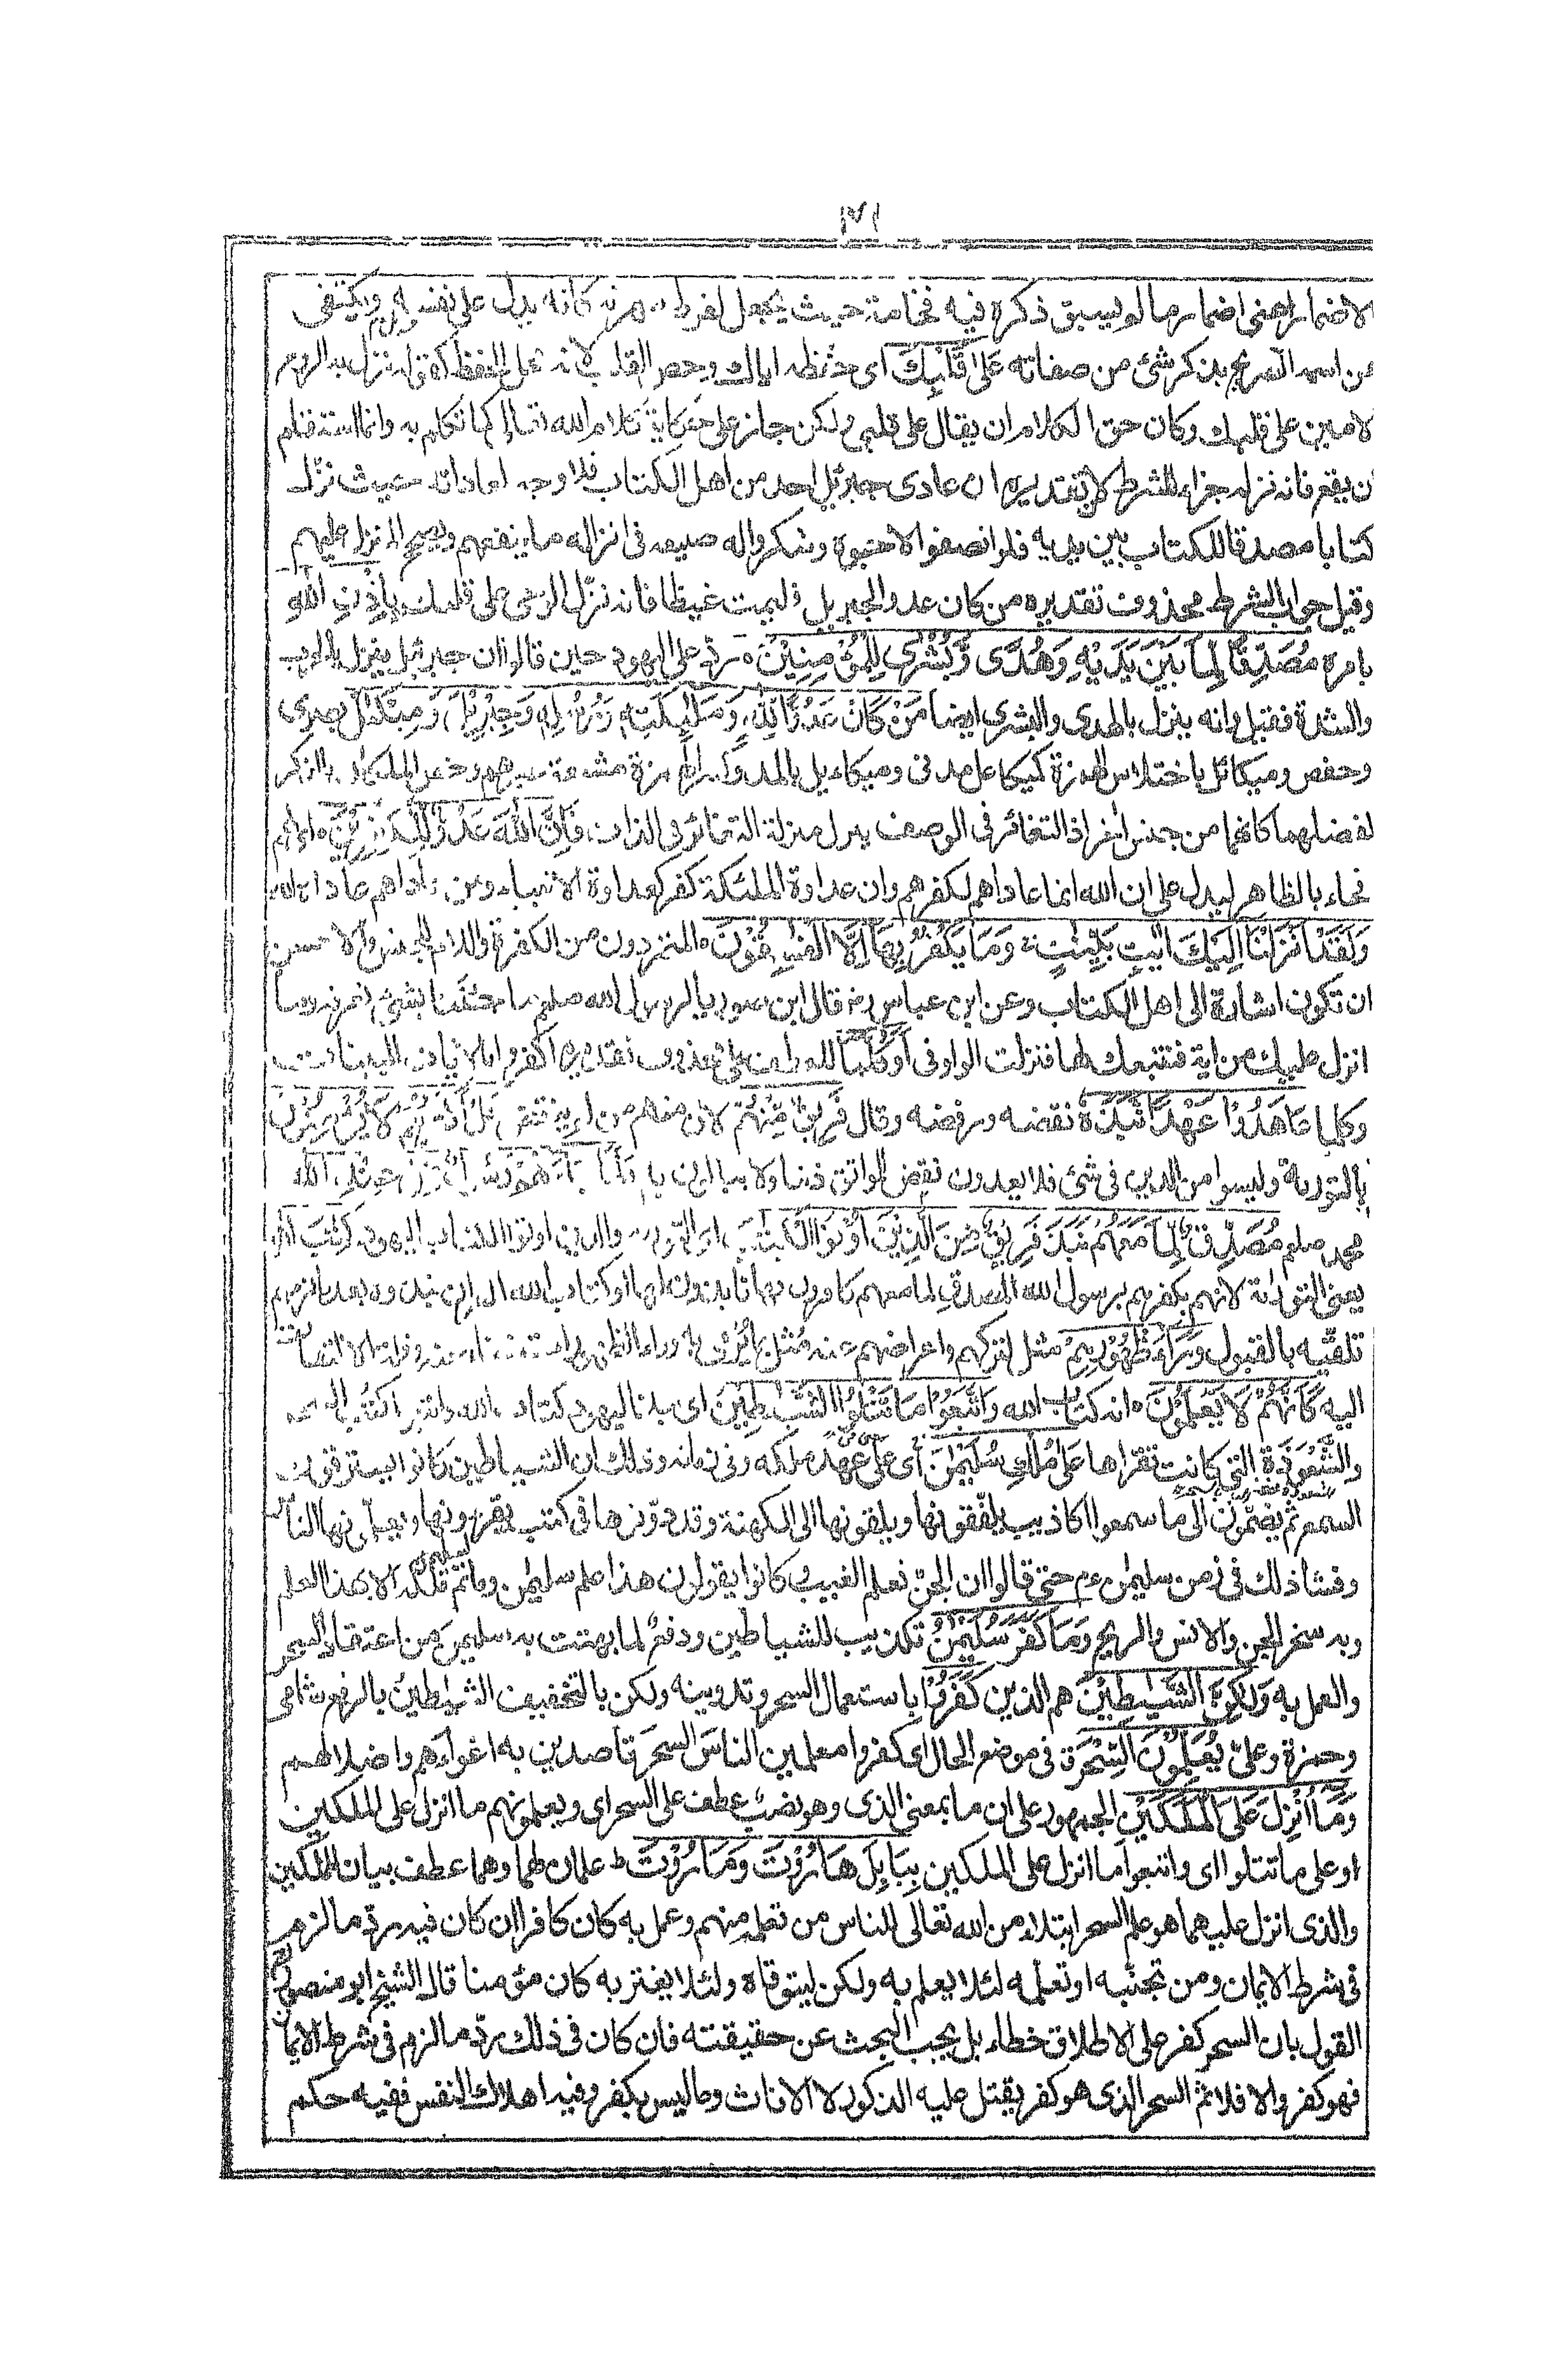 الاضمار اعنى اضمار ما لو يسبق ذكره فيه فخامة حيث يجعل لفرط شهرته كانه يدل على نفسه ويكتفى
عن اسمه الصريح بذكر شئ من صفاته عَلٰى قَلْبِكَ اى حفظه اياك وخص القلب لانه محل الحفظ كقوله نزل به الروح
الامين على قلبك وكان حق الكلام ان يقال على قلبى ولكن جاز على حكاية كلام الله تعالى كما تكلم به وانما استقام
ان يقع فانه نزله جزاء للشرط لان تقديره ان عادى جبرئيل احد من اهل الكتاب فلا وجه لمعاداته حيث نزل
كتابا مصدقا للكتاب بين يديه فلو انصفوا لاحبوه وشكروا له صنيعه فى انزاله ما ينفعهم ويصحح المنزل عليهم
وقيل جواب الشرط محذوف تقديره من كان عدوا لجبريل فليمت غيظا فانه نزل الوحى على قلبك بِاِذْنِ اللّٰهِ
بامره مُصَدِّقًا لِّمَا بَيْنَ يَدَيْهِ وَهُدًى وَّبُشْرٰى لِلْمُؤْمِنِيْنَ ه رد على اليهود حين قالوا ان جبرئيل ينزل بالحرب
والشدة فقيل وانه ينزل بالهدى والبشرى ايضا مَنْ كَانَ عَدُوًّا لِّلّٰهِ وَمَلٰٓئِكَتِهٖ وَرُسُلِهٖ وَجِبْرِيْلَ وَمِيْكٰىلَ بصرى
وحفص وميكائل باختلاس الهمزة كميكاعل مدنى وميكاءيل بالمد وكسر الهمزة مشبعة غيرهم وخص الملكان بالذكر
لفضلهما كانهما من جنس اخر اذ التغائر فى الوصف ينزل منزلة التغائر فى الذات فَاِنَّ اللّٰهَ عَدُوٌّ لِّلْكٰفِرِيْنَ ه اى لهم
فجاء بالظاهر ليدل على ان الله انما عاداهم لكفرهم وان عداوة الملئكة كفر كعداوة الانبياء ومن عاداهم عاداه الله
وَلَقَدْ اَنْزَلْنَا اِلَيْكَ اٰيٰتٍ بَيِّنٰتٍ وَمَا يَكْفُرُ بِهَا اِلَّا الْفٰسِقُوْنَ ه المتمردون من الكفرة واللام للجنس والاحسن
ان تكون اشارة الى اهل الكتاب وعن ابن عباس رض قال ابن صوريا لرسول الله صلعم ما جئتنا بشئ نعرفه وما
انزل عليك من اية فنتبعك لها فنزلت الواو فى اَوَكُلَّمَا للعطف على محذوف تقديره اكفروا بالايات البينات
وكلما عَاهَدُوْا عَهْدًا نَّبَذَهٗ نقضه ورفضه وقال فَرِيْقٌ مِّنْهُمْ لان منهم من لم ينقض بَلْ اَكْثَرُهُمْ لَا يُؤْمِنُوْنَ
بالتورية وليسوا من الدين فى شئ فلا يعدون نقض المواثق ذنبا ولا يبالون به وَلَمَّا جَآءَهُمْ رَسُوْلٌ مِّنْ عِنْدِ اللّٰهِ
محمد صلعم مُصَدِّقٌ لِّمَا مَعَهُمْ نَبَذَ فَرِيْقٌ مِّنَ الَّذِيْنَ اُوْتُوا الْكِتٰبَ اى التورية والذين اوتوا الكتاب اليهود كِتٰبَ اللّٰهِ
يعنى التوراة لانهم بكفرهم برسول الله المصدق لما معهم كافرون بها نابذون لها او كتاب الله القران نبذوه بعد ما لزمهم
تلقيه بالقبول وَرَآءَ ظُهُوْرِهِمْ مثل لتركهم واعراضهم عنه مثل بما يرمى به وراء الظهر استغناء عنه وقلة الالتفات
اليه كَاَنَّهُمْ لَا يَعْلَمُوْنَ ه انه كتاب الله وَاتَّبَعُوْا مَا تَتْلُوا الشَّيٰطِيْنُ اى نبذ اليهود كتاب الله واتبعوا كتب السحر
والشَّعْوَذة التى كانت تقراها عَلٰى مُلْكِ سُلَيْمٰنَ اى على عهد ملكه وفى زمانه وذلك ان الشياطين كانوا يسترقون
السمع ثم يضمون الى ما سمعوا اكاذيب يلفقونها ويلقونها الى الكهنة وقد دونوها فى كتب يقرؤنها ويعلمونها الناس
وفشا ذلك فى زمن سليمن ءم حتى قالوا ان الجن تعلم الغيب وكانوا يقولون هذا علم سليمن وما تم لسليمن ملكه الا بهذا العلم
وبه سخر الجن والانس والريح وَمَا كَفَرَ سُلَيْمٰنُ تكذيب للشياطين ودفع لما بهتت به سليمن من اعتقاد السحر
والعمل به وَلٰكِنَّ الشَّيٰطِيْنَ هم الذين كَفَرُوْا باستعمال السحر وتدوينه ولكن بالتخفيف الشيطين بالرفع شامى
وحمزة وعلى يُعَلِّمُوْنَ النَّاسَ السِّحْرَ فى موضع الحال اى كفروا معلمين الناس السحر قاصدين به اغواءهم واضلالهم
وَمَا اُنْزِلَ عَلَى الْمَلَكَيْنِ الجمهور على ان ما بمعنى الذى وهو نصب عطف على السحر اى ويعلمونهم ما انزل على الملكين
او على ما تتلوا اى واتبعوا ما انزل على الملكين بِبَابِلَ هَارُوْتَ وَمَارُوْتَ ط علمان لهما وهما عطف بيان للملكين
والذى انزل عليهما هو علم السحر ابتلاء من الله تعالى للناس من تعلمه منهم وعمل به كان كافرا ان كان فيه رد ما لزم
فى شرط الايمان ومن تجنبه او تعلمه لئلا يعلم به ولكن ليتوقاه ولئلا يغتر به كان مؤمنا قال الشيخ ابو منصور رح
القول بان السحر كفر على الاطلاق خطاء بل يجب البحث عن حقيقته فان كان فى ذلك رد ما لزم فى شرط الايمان
فهو كفر والا فلا ثم السحر الذى هو كفر يقتل عليه الذكور لا الاناث وما ليس بكفر وفيه اهلاك النفس ففيه حكم